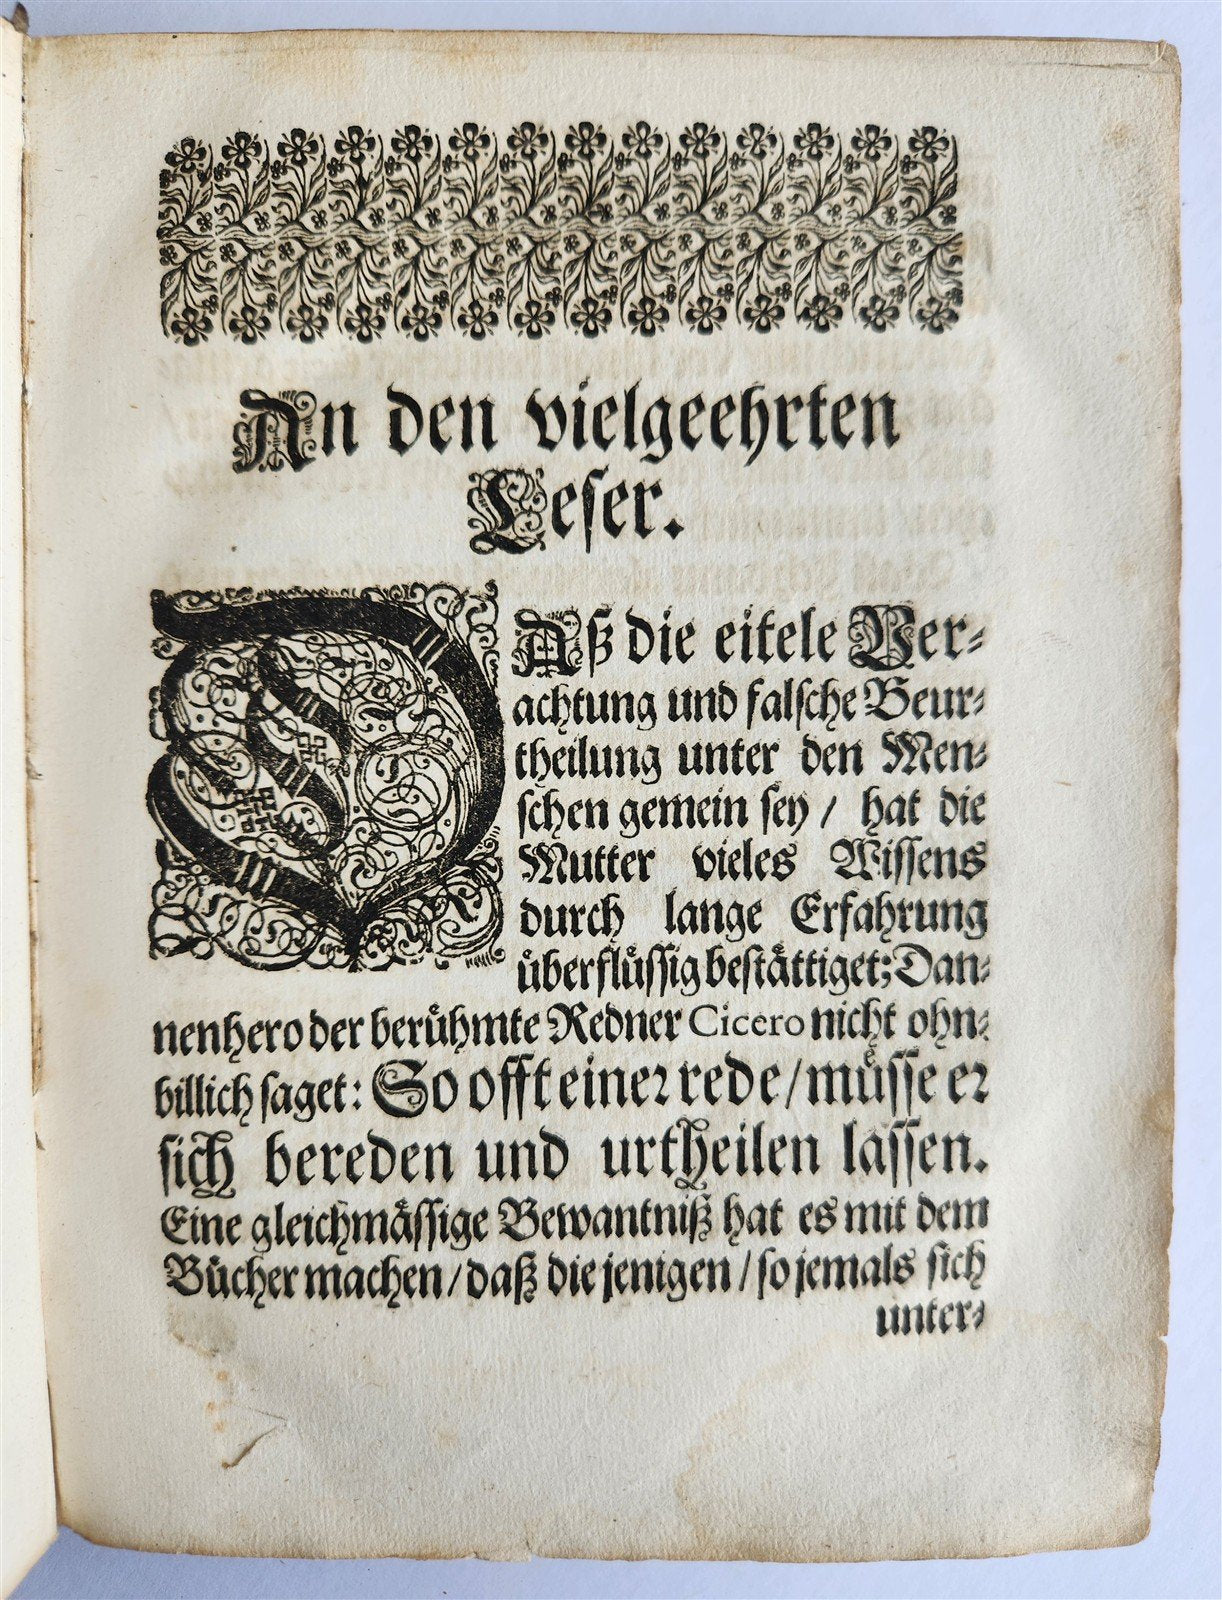 An den vielgeehrten
Leser.
DAß die eitele Ver⸗
achtung und falſche Beur⸗
theilung unter den Men⸗
ſchen gemein ſey / hat die
Mutter vieles Wiſſens
durch lange Erfahrung
uͤberfluͤſſig beſtaͤttiget; Dan⸗
nenhero der beruͤhmte Redner Cicero nicht ohn⸗
billich ſaget: So offt einer rede / muͤſſe er
ſich bereden und urtheilen laſſen.
Eine gleichmaͤſſige Bewantniß hat es mit dem
Buͤcher machen / daß die jenigen / ſo jemals ſich
unter⸗